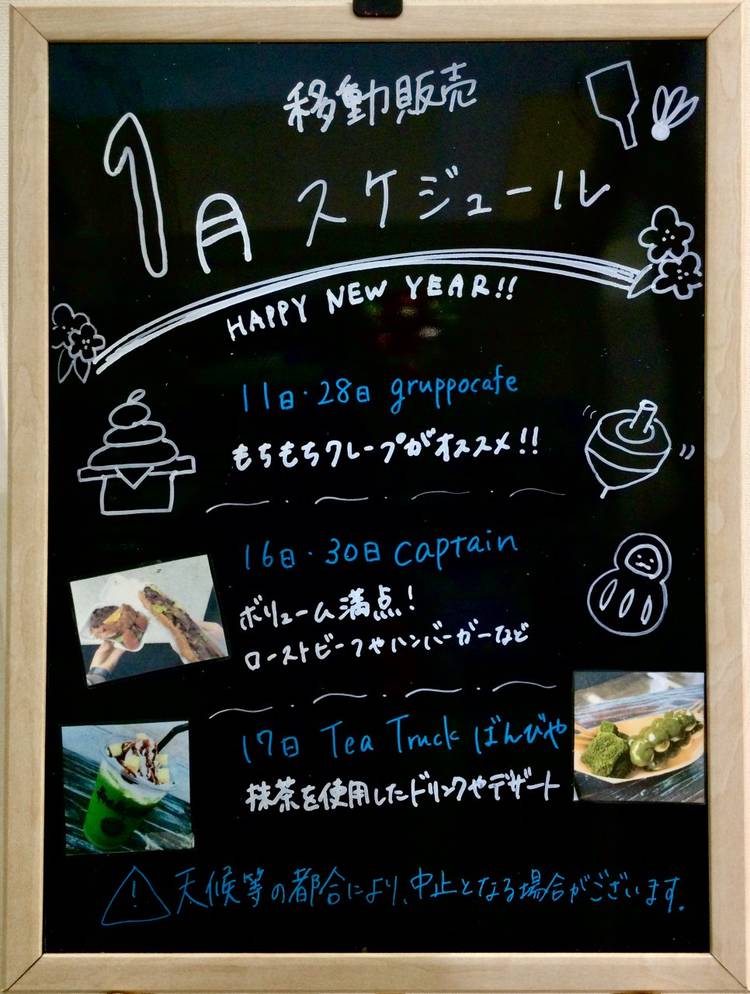 移動販売
1月 スケジュール
HAPPY NEW YEAR!!
11日・28日 gruppocafe
もちもちクレープがオススメ!!
16日・30日 captain
ボリューム満点!
ローストビーフやハンバーガーなど
17日 Tea Truck ばんびや
抹茶を使用したドリンクやデザート
! 天候等の都合により、中止となる場合がございます.